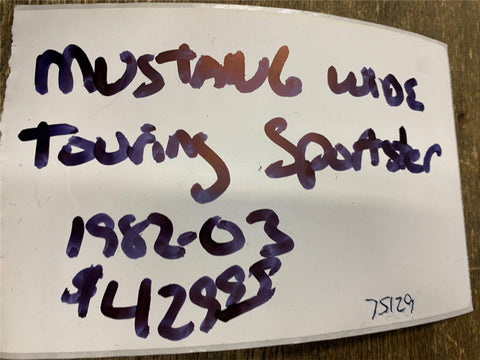 MUSTANG WIDE
Touring Sportster
1982-03
$42995
75129